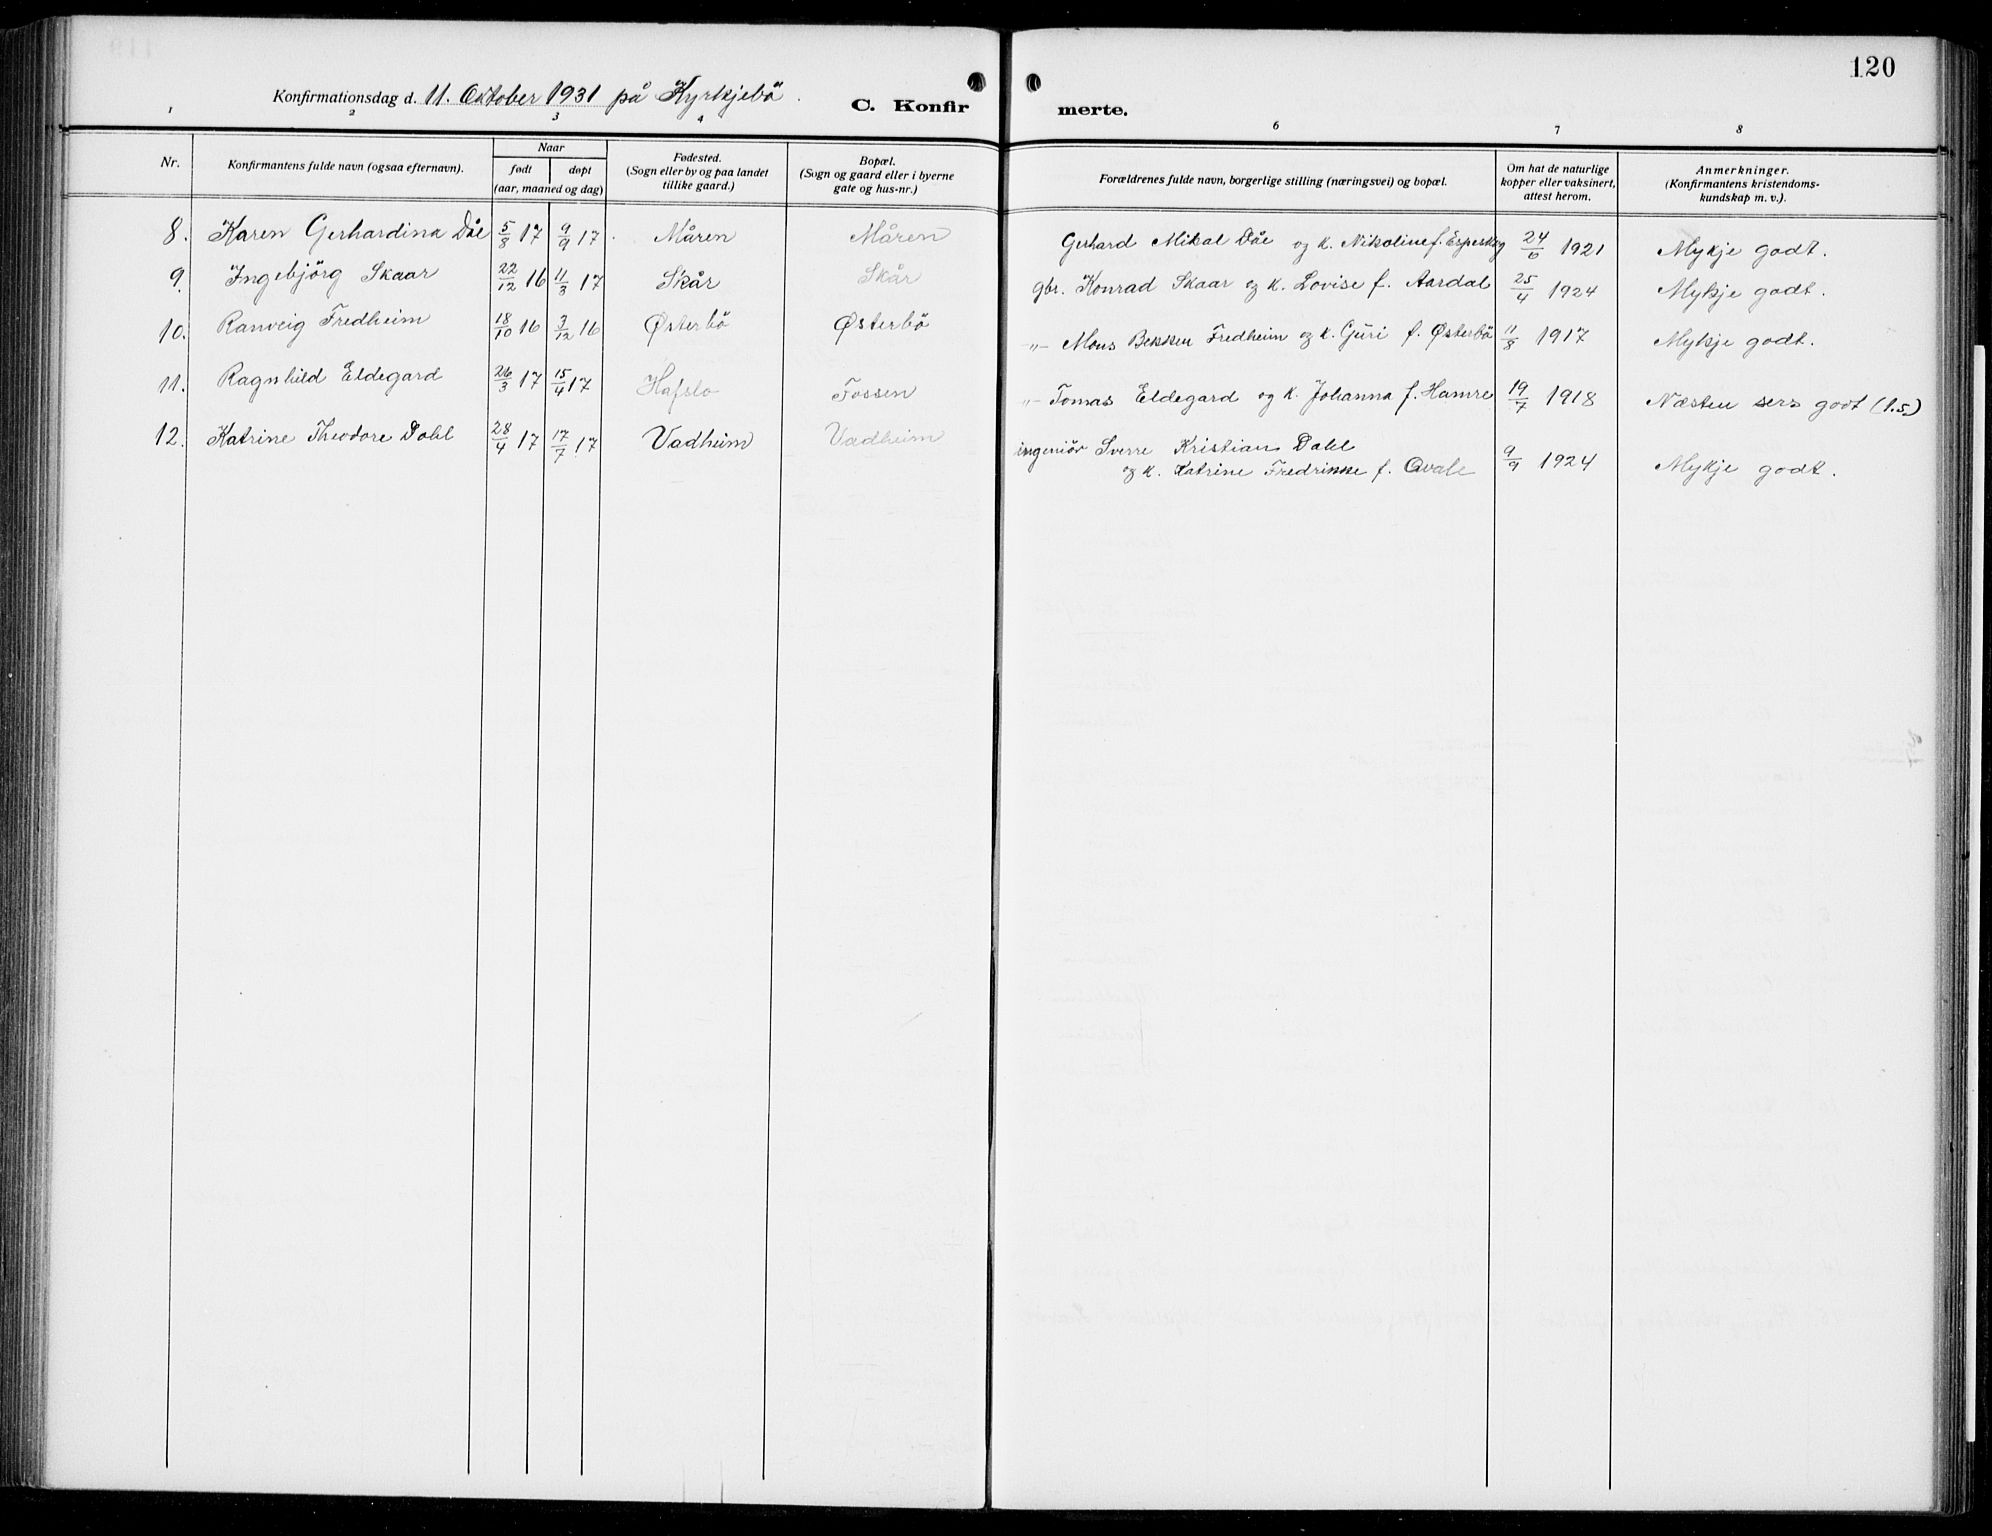 120
Konfirmationsdag d. 11. Oktober 1931 på Kyrkjebö.
C. Konfirmerte.
1 2 3 4 6 7 8
Nr. Konfirmantens fulde navn (ogsaa efternavn). Naar født døpt (aar, maaned og dag) Fødested. (Sogn eller by og paa landet tillike gaard.) Bopæl. (Sogn og gaard eller i byerne gate og hus-nr.) Forældrenes fulde navn, borgerlige stilling (næringsvei) og bopæl. Om hat de naturlige kopper eller vaksinert, attest herom. Anmerkninger. (Konfirmantens kristendomskundskap m. v.).
8. Karen Gerhardina Dåe 5/8 17 9/9 17 Måren Måren Gerhard Mikal Dåe og k. Nikoline f. Espeskog 24/6 1921 Mykje godt.
9. Ingebjörg Skaar 22/12 16 11/3 17 Skår Skår gbr. Konrad Skaar og k. Lovise f. Aardal 25/4 1924 Mykje godt.
10. Ranveig Fredheim 18/10 16 3/12 16 Østerbö Østerbö -"- Mons Bekken Fredheim og k. Guri f. Østerbö 11/8 1917 Mykje godt.
11. Ragnhild Eldegard 26/3 17 15/4 17 Hafslo Fossen -"- Tomas Eldegard og k. Johanna f. Hamre 19/7 1918 Næsten sers godt (1.5)
12. Katrine Theodore Dahl 28/4 17 17/7 17 Vadheim Vadheim ingeniör Sverre Kristian Dahl
og k. Katrine Fredrikke f. Qvale 9/9 1924 Mykje godt.